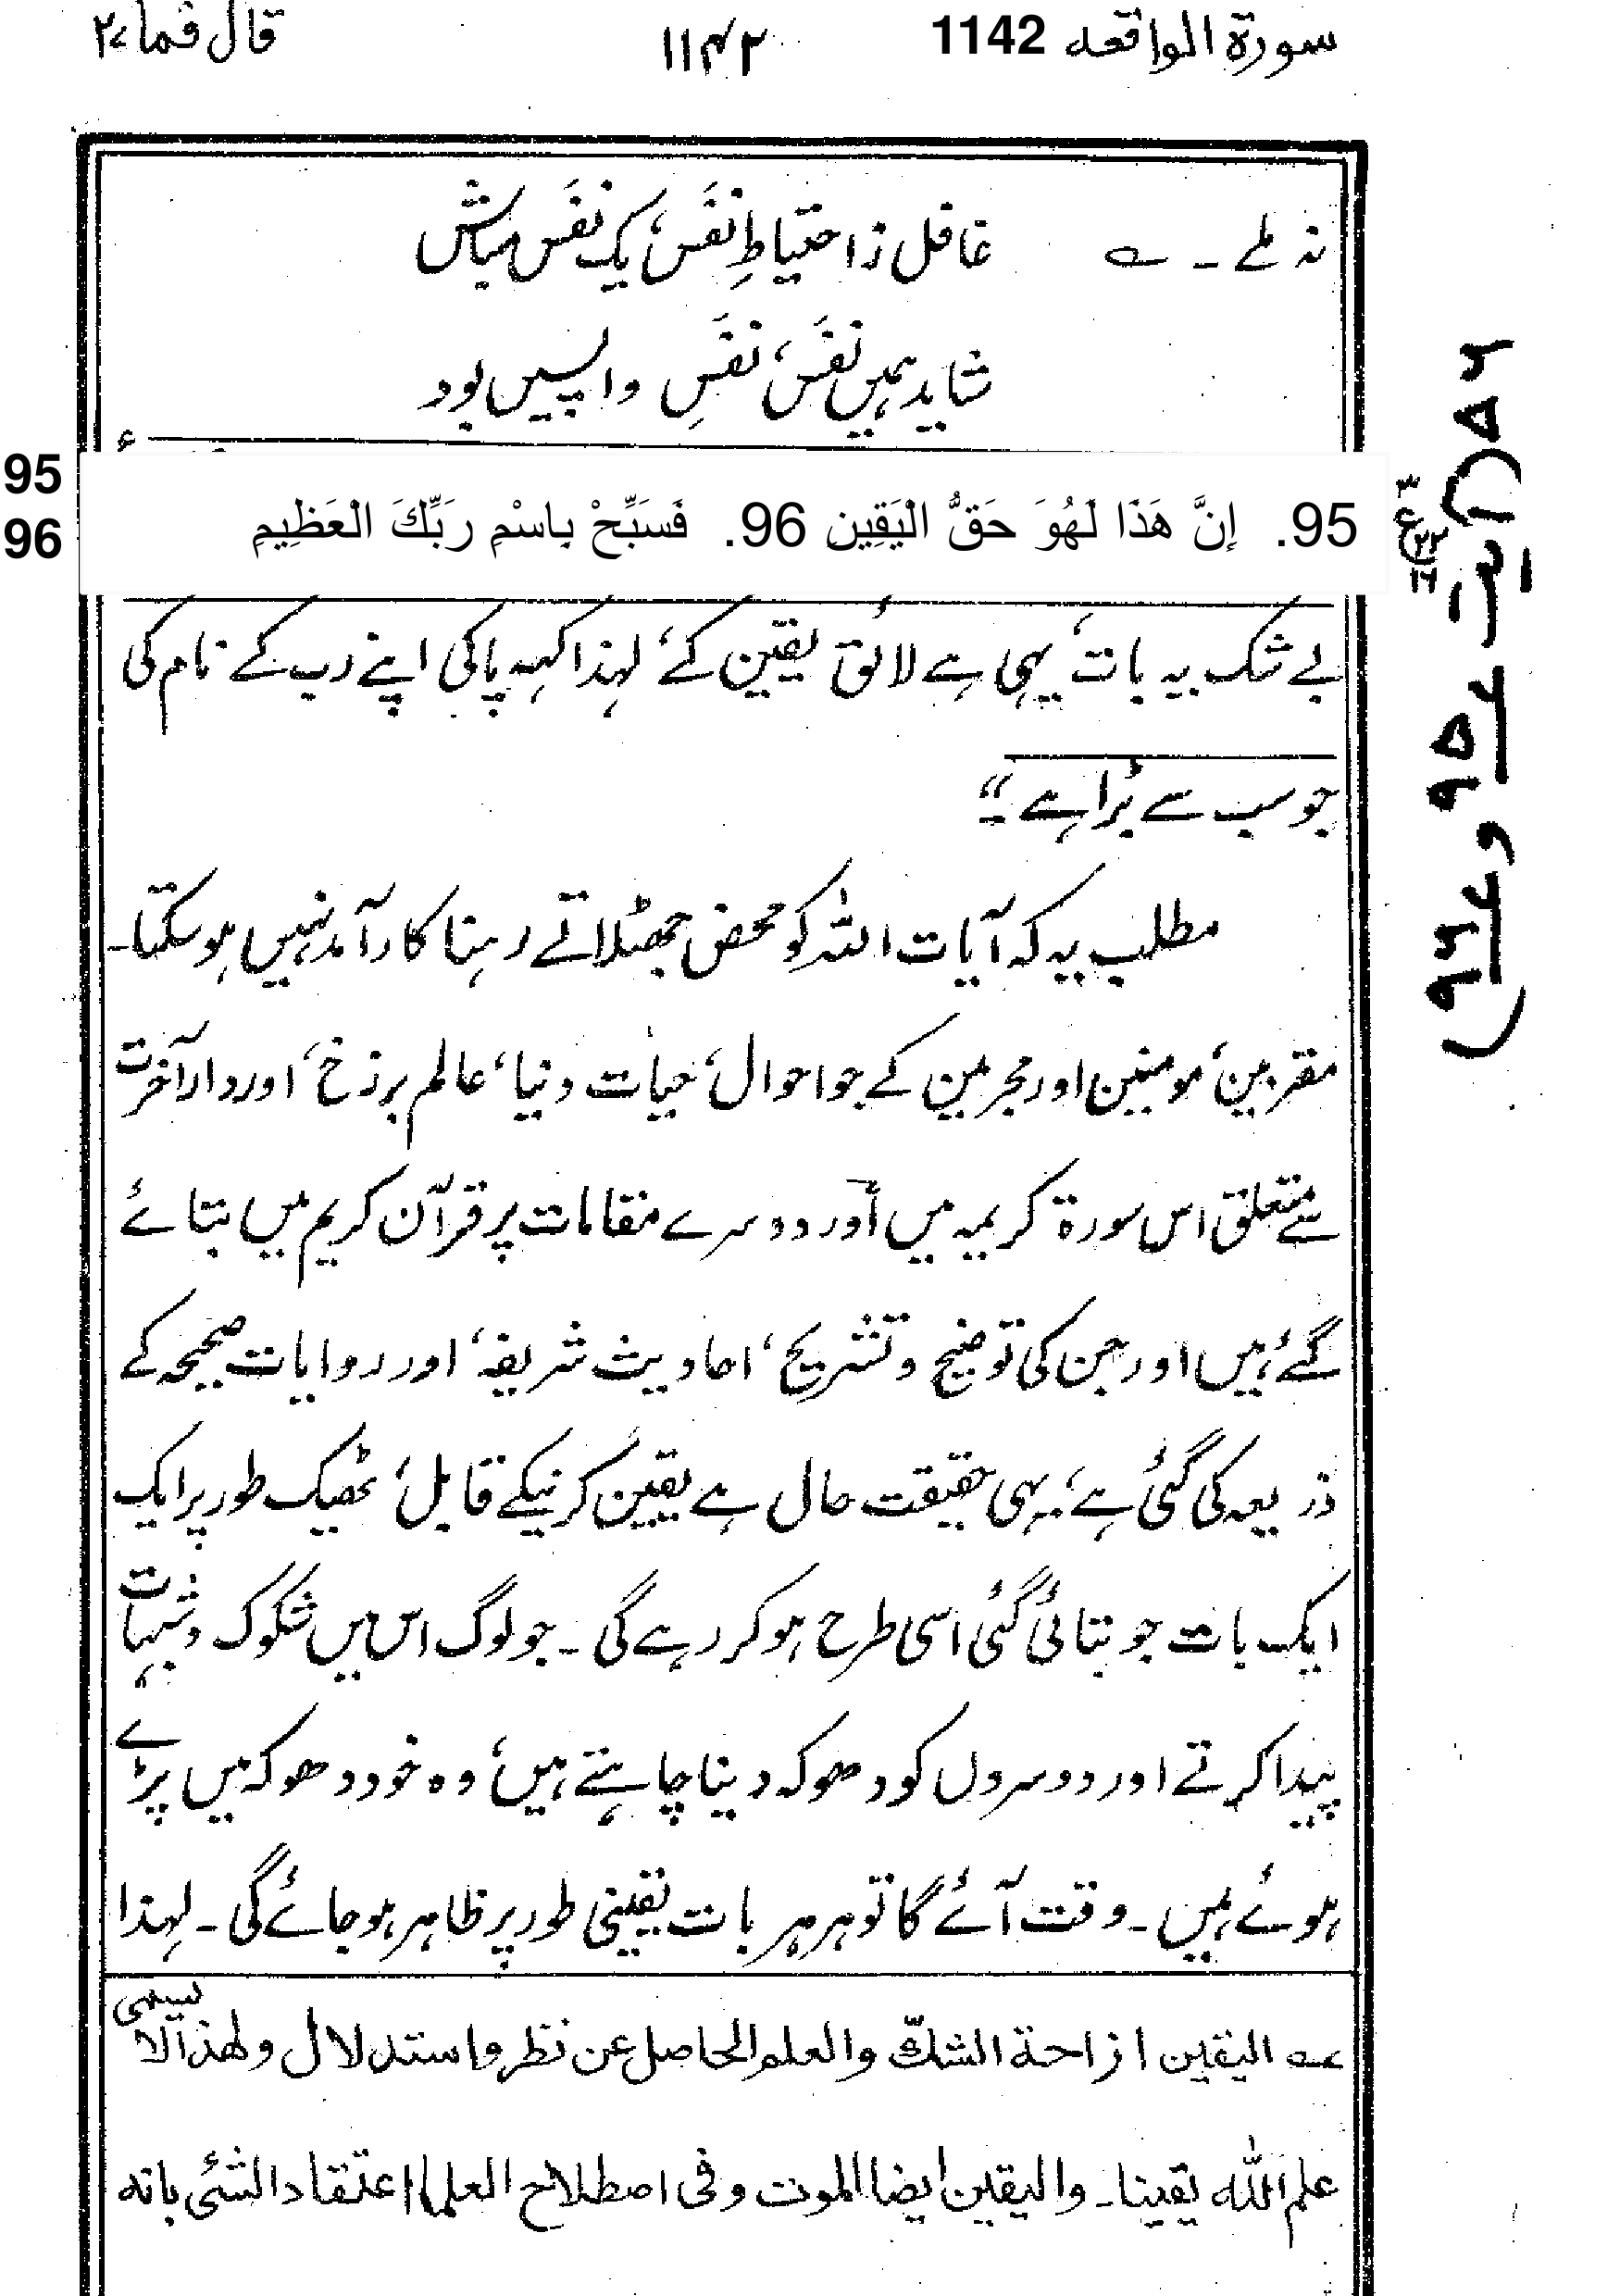 سورۃ الواقعہ 1142 ۱۱۴۲ قال فما ۲۷
نہ ملے ۔ ؎ غافل ز احتیاطِ نفَس، یک نفَس مباش
شاید ہمیں نفَس، نفَسِ واپسیں بود
ع
95
96
95. إِنَّ هَذَا لَهُوَ حَقُّ الْيَقِين 96. فَسَبِّحْ بِاسْمِ رَبِّكَ الْعَظِيمِ
بے شک یہ بات، یہی ہے لائق یقین کے، لہٰذا کہہ پاکی اپنے رب کے نام کی
جو سب سے بڑا ہے ۔"
مطلب یہ کہ آیات اللہ کو محض جھٹلاتے رہنا کار آمد نہیں ہو سکتا ۔
مقربین، مومنین اور مجرمین کے جو احوال، حیات دنیا، عالم برزخ، اور دار آخرت
سے متعلق اس سورۃ کریمہ میں اور دوسرے مقامات پر قرآن کریم میں بتائے
گئے ہیں اور جن کی توضیح و تشریح، احادیث شریفہ، اور روایات صحیحہ کے
ذریعہ کی گئی ہے، یہی حقیقت حال ہے یقین کرنیکے قابل، ٹھیک طور پر ایک
ایک بات جو بتائی گئی اسی طرح ہو کر رہے گی ۔ جو لوگ اس میں شکوک و شبہات
پیدا کرتے اور دوسروں کو دھوکہ دینا چاہتے ہیں، وہ خود دھوکہ میں پڑے
ہوئے ہیں ۔ وقت آئے گا تو ہر ہر بات یقینی طور پر ظاہر ہو جائے گی ۔ لہذا
؎ الیقین ازاحة الشكّ والعلم الحاصل عن نظر واستدلال ولهذا لا یسمی
علم الله یقینا ۔ والیقین ایضا الموت وفی اصطلاح العلماء اعتقاد الشئی بانه
۳
ع
۲۲
۱۶
۵۶ (آیت ۹۵ و ۹۶)